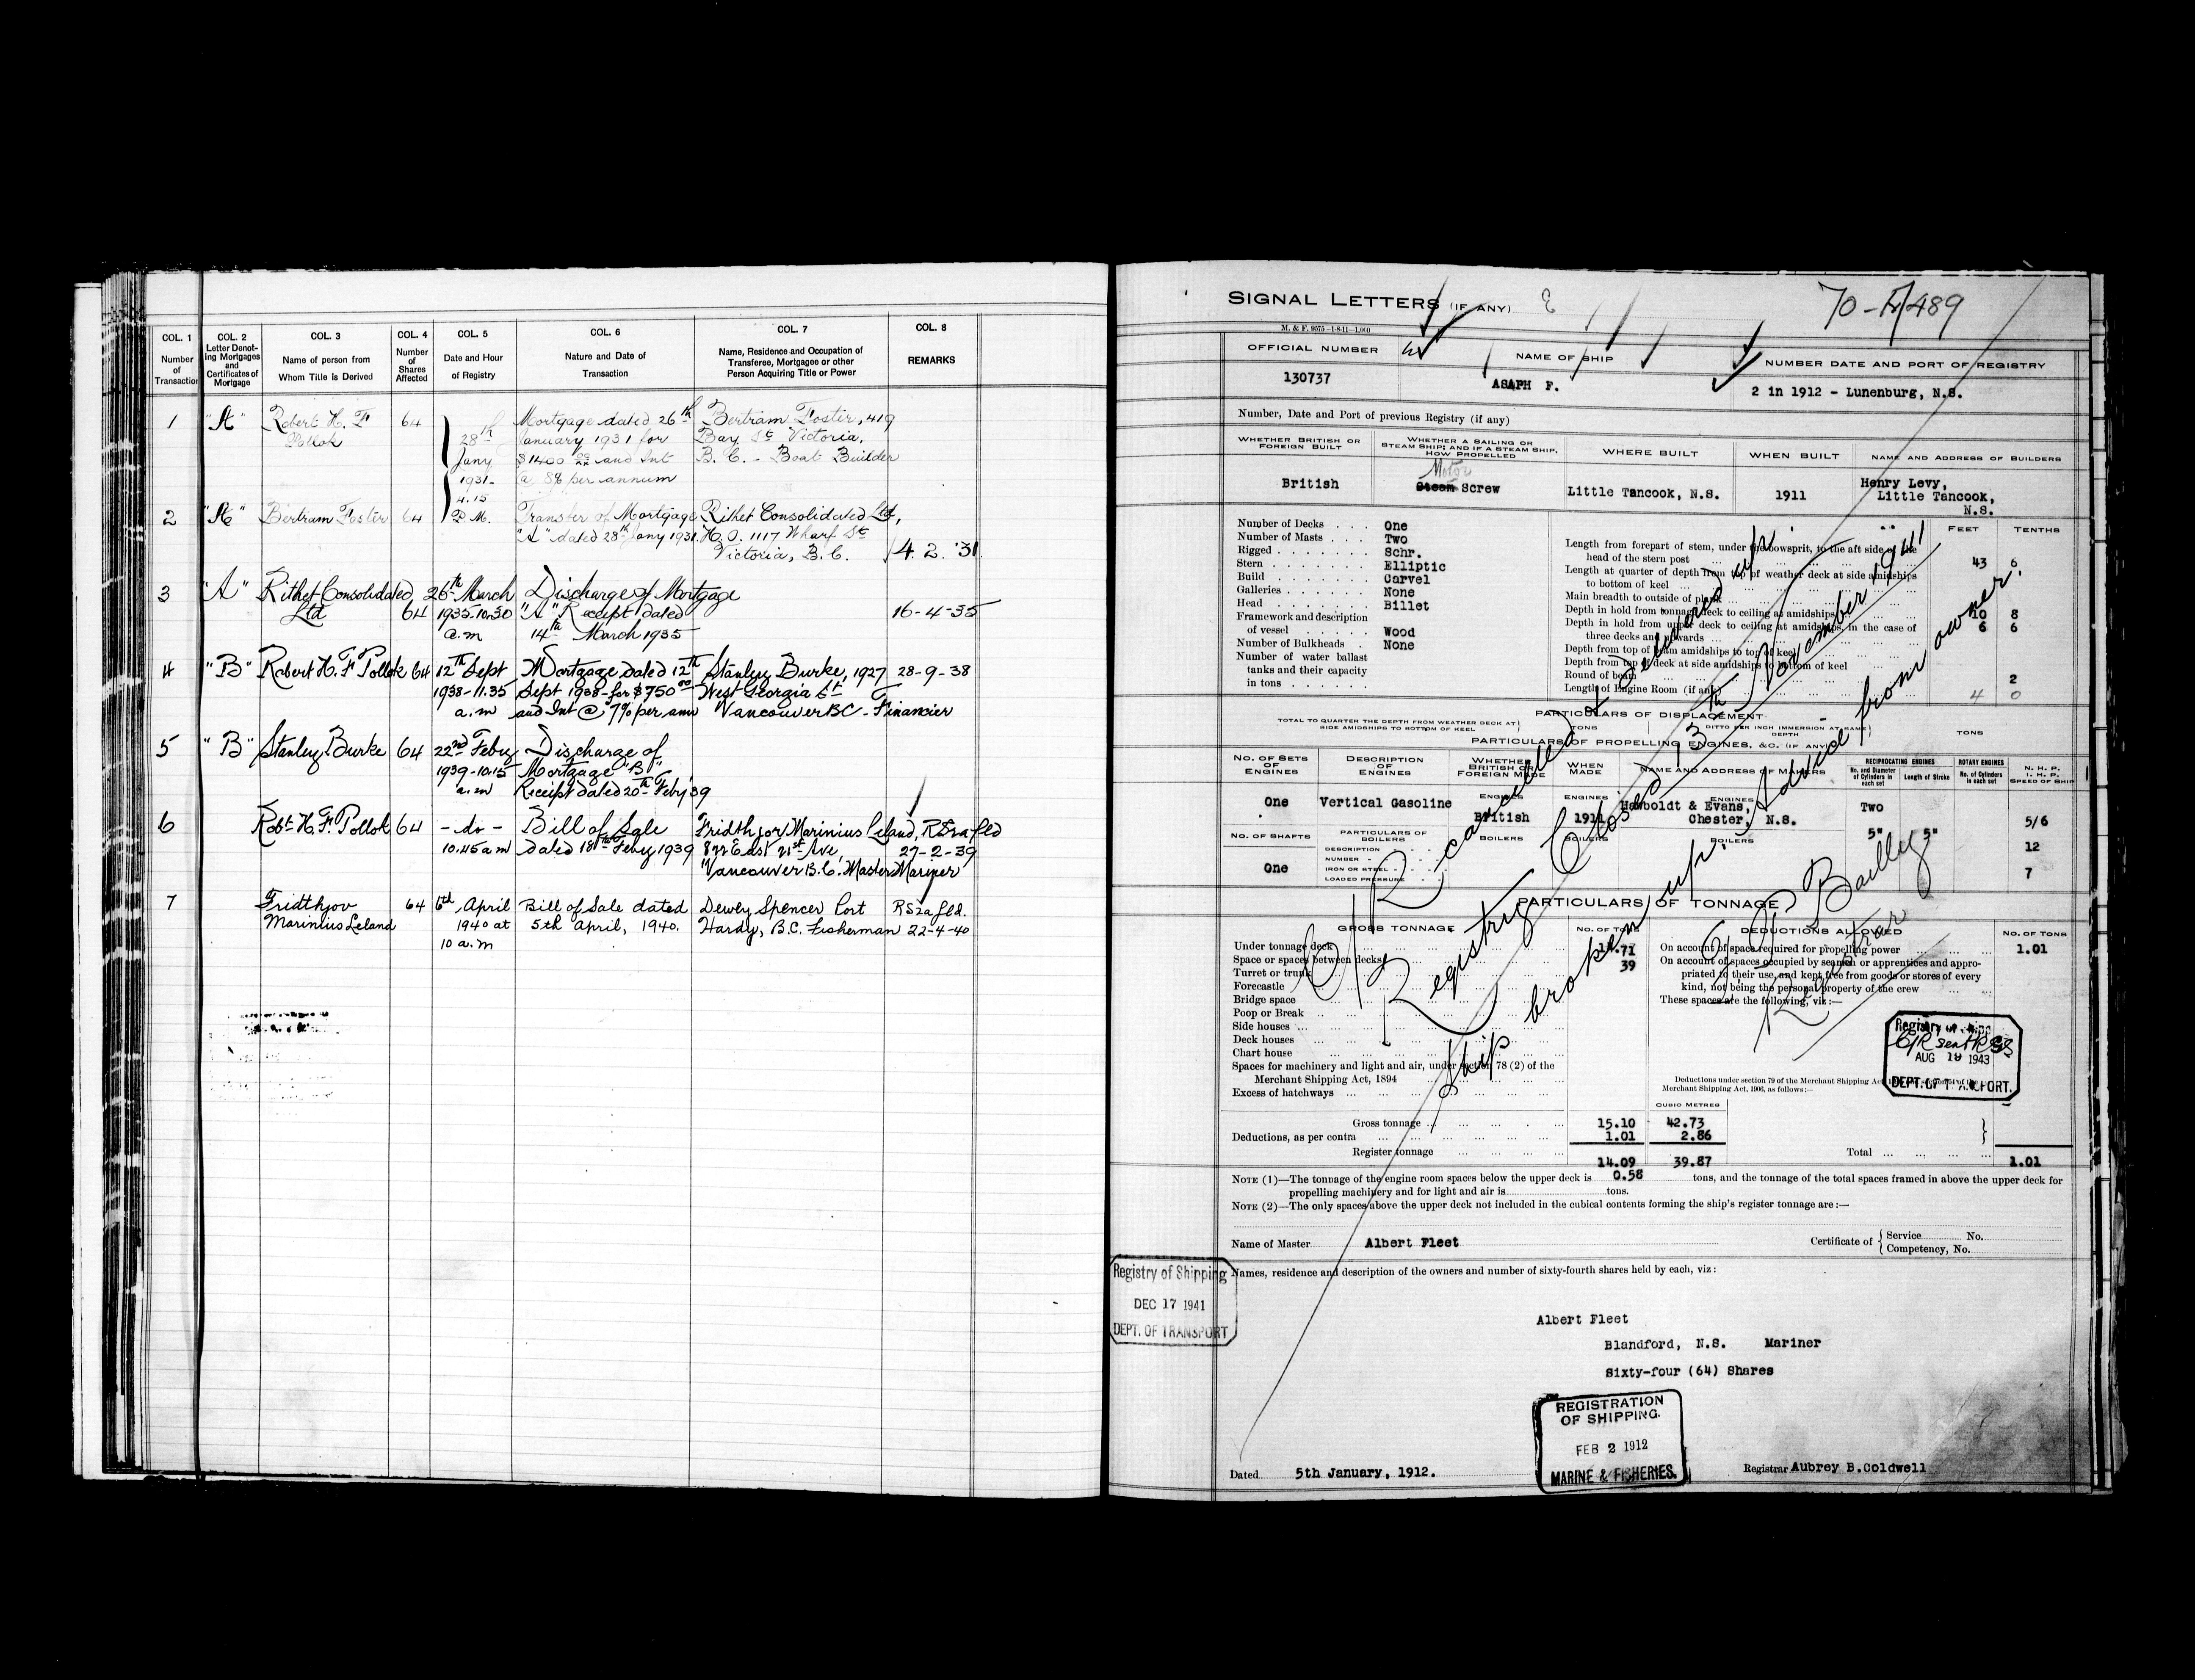 COL. 1
Number
of
Transaction
COL. 2
Letter Denot-
ing Mortgages
and
Certificates of
Mortgage
COL. 3
Name of person from
Whom Title is Derived
COL. 4
Number
of
Shares
Affected
COL. 5
Date and Hour
of Registry
COL. 6
Nature and Date of
Transaction
COL. 7
Name, Residence and Occupation of
Transferee, Mortgagee or other
Person Acquiring Title or Power
COL. 8
REMARKS
1 "A" Robert H. F. 64 Mortgage dated 26th Bertram Foster, 419
Pollok 28th January 1931 for Bay St Victoria,
Jany $1400 00/xx and Int B. C. - Boat Builder
1931- @ 8% per annum
4.15
2 "A" Bertram Foster 64 P.M. Transfer of Mortgage Rithet Consolidated Ltd,
"A" dated 28th Jany 1931. H.O. 1117 Wharf St
Victoria, B.C. 4. 2. '31
3 "A" Rithet Consolidated 26th March Discharge of Mortgage
Ltd 64 1935-10.30 "A" Receipt dated 16-4-35
a.m 14th March 1935
4 "B" Robert H. F. Pollok 64 12th Sept Mortgage dated 12th Stanley Burke, 1927 28-9-38
1938-11.35 Sept 1938-for $750 00 West Georgia St
a.m and Int @ 7% per ann Vancouver BC - Financier
5 "B" Stanley Burke 64 22nd Feby Discharge of
1939-10.15 Mortgage "B"
a.m Receipt dated 20th Feby '39
6 Robt H. F. Pollok 64 - do - Bill of Sale Fridthjov Marinius Leland, RS2a fld
10.45 a m dated 18th Feby 1939 822 East 21st Ave, 27-2-39
Vancouver B.C. Master Mariner
7 Fridthjov 64 6th April Bill of Sale dated Dewey Spencer Port RS2a fld.
Marinius Leland 1940 at 5th April, 1940. Hardy, B.C. Fisherman 22-4-40
10 a.m
SIGNAL LETTERS (IF ANY)
M. & F. 9575-1-8-11-1,000
OFFICIAL NUMBER
NAME OF SHIP
NUMBER DATE AND PORT OF REGISTRY
130737
ASAPH F.
2 in 1912 - Lunenburg, N.S.
Number, Date and Port of previous Registry (if any)
WHETHER BRITISH OR
FOREIGN BUILT
WHETHER A SAILING OR
STEAM SHIP; AND IF A STEAM SHIP,
HOW PROPELLED
WHERE BUILT
WHEN BUILT
NAME AND ADDRESS OF BUILDERS
British
Motor
Steam Screw
Little Tancook, N.S.
1911
Henry Levy,
Little Tancook,
N.S.
Number of Decks . . . One
Number of Masts . . . Two
Rigged . . . . . . . Schr.
Stern . . . . . . . Elliptic
Build . . . . . . . Carvel
Galleries . . . . . . None
Head . . . . . . . Billet
Framework and description
of vessel . . . . . Wood
Number of Bulkheads . None
Number of water ballast
tanks and their capacity
in tons . . . . . .
FEET TENTHS
Length from forepart of stem, under the bowsprit, to the aft side of the
head of the stern post 43 6
Length at quarter of depth from top of weather deck at side amidships
to bottom of keel
Main breadth to outside of plank
Depth in hold from tonnage deck to ceiling at amidships 10 8
Depth in hold from upper deck to ceiling at amidships, in the case of 6 6
three decks and upwards
Depth from top of beam amidships to top of keel
Depth from top of deck at side amidships to bottom of keel
Round of beam 2
Length of Engine Room (if any) 4 0
PARTICULARS OF DISPLACEMENT
TOTAL TO QUARTER THE DEPTH FROM WEATHER DECK AT
SIDE AMIDSHIPS TO BOTTOM OF KEEL
TONS
DITTO PER INCH IMMERSION AT SAME
DEPTH
TONS
PARTICULARS OF PROPELLING ENGINES, &C. (IF ANY)
NO. OF SETS
OF
ENGINES
DESCRIPTION
OF
ENGINES
WHETHER
BRITISH OR
FOREIGN MADE
WHEN
MADE
NAME AND ADDRESS OF MAKERS
RECIPROCATING ENGINES
No. and Diameter
of Cylinders in
each set
Length of Stroke
ROTARY ENGINES
No. of Cylinders
in each set
N. H. P.
I. H. P.
SPEED OF SHIP
ENGINES ENGINES ENGINES
One Vertical Gasoline British 1911 Hawboldt & Evans,
Chester, N.S.
Two
5" 5"
5/6
12
7
NO. OF SHAFTS
PARTICULARS OF
BOILERS
BOILERS BOILERS BOILERS
One
DESCRIPTION
NUMBER
IRON OR STEEL
LOADED PRESSURE
PARTICULARS OF TONNAGE
GROSS TONNAGE
NO. OF TONS
DEDUCTIONS ALLOWED
NO. OF TONS
Under tonnage deck 14.71
Space or spaces between decks 39
Turret or trunk
Forecastle
Bridge space
Poop or Break
Side houses
Deck houses
Chart house
Spaces for machinery and light and air, under section 78 (2) of the
Merchant Shipping Act, 1894
Excess of hatchways
On account of space required for propelling power 1.01
On account of spaces occupied by seamen or apprentices and appro-
priated to their use, and kept free from goods or stores of every
kind, not being the personal property of the crew
These spaces are the following, viz:—
Deductions under section 79 of the Merchant Shipping Act
Merchant Shipping Act, 1906, as follows:—
CUBIC METRES
Gross tonnage 15.10 42.73
Deductions, as per contra 1.01 2.86
Register tonnage 14.09 39.87
Total 1.01
NOTE (1)—The tonnage of the engine room spaces below the upper deck is 0.58 tons, and the tonnage of the total spaces framed in above the upper deck for
propelling machinery and for light and air is tons.
NOTE (2)—The only spaces above the upper deck not included in the cubical contents forming the ship's register tonnage are:—
Name of Master Albert Fleet
Certificate of Service No.
Competency, No.
Names, residence and description of the owners and number of sixty-fourth shares held by each, viz:
Albert Fleet
Blandford, N.S. Mariner
Sixty-four (64) Shares
Dated 5th January, 1912.
Registrar Aubrey B. Coldwell
C/R cancelled &
Registry Closed 3th November 1941
Ship broken up. Advice from owner.
Bailley
Registrar
Registry of Shipping
DEC 17 1941
DEPT. OF TRANSPORT
REGISTRATION
OF SHIPPING.
FEB 2 1912
MARINE & FISHERIES.
Registry of Shipp
C/R sent RGS
AUG 19 1943
DEPT. OF TRANSPORT.